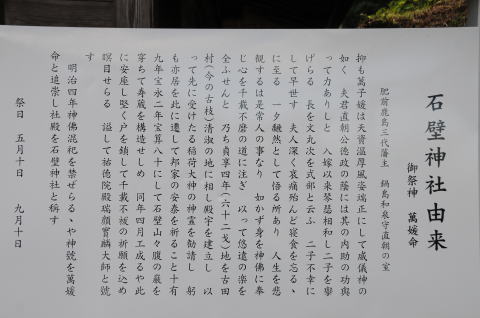 石壁神社由来
御祭神　萬媛命
肥前鹿島三代藩主　鍋島和泉守直朝の室
抑も萬子媛は天資温厚風姿端正にして威儀神の
如く　夫君直朝公徳政の蔭には其の内助の功與
って力ありしと　入嫁以来琴瑟相和し二子を挙
げらる　長を文丸次を式部と云ふ　二子不幸に
して早世す　夫人深く哀痛殆んど寝食を忘るゝ
に至る　一夕翻然として悟る所あり　人生を悲
観するは是常人の事なり　如かず身を神佛に奉
じ心を千載不磨の道に注ぎ　以って悠遠の楽を
全ふせんと　乃ち貞享四年（六十二才）地を古田
村（今の古枝）清淑の地に相し殿宇を建立し　以
って先に受けたる稲荷大神の神霊を勧請し　躬
も亦居を此に遷して邦家の安泰を祈ること十有
九年宝永二年宝算八十にして石壁山々腹の巌を
穿ちて寿蔵を構造せしめ　同年四月工成るや此
に安座し堅く戸を鎖して千載不拔の祈願を込め
瞑目せらる　謚して祐徳院殿瑞顔實麟大師と號
す
明治四年神佛混祀を禁ぜらるゝや神號を萬媛
命と追崇し社殿を石壁神社と称す
祭日　五月十日　九月十日